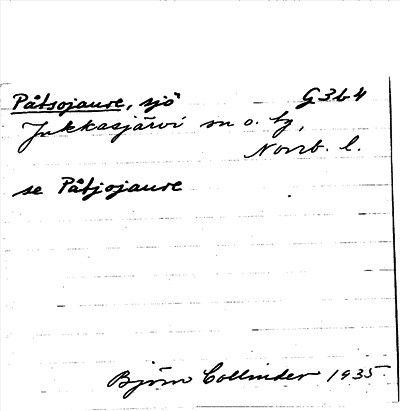 Påtsojaure, sjö G3b4
Jukkasjärvi sn o. tg,
Norrb. l.
se Påtjojaure
Björn Collinder 1935